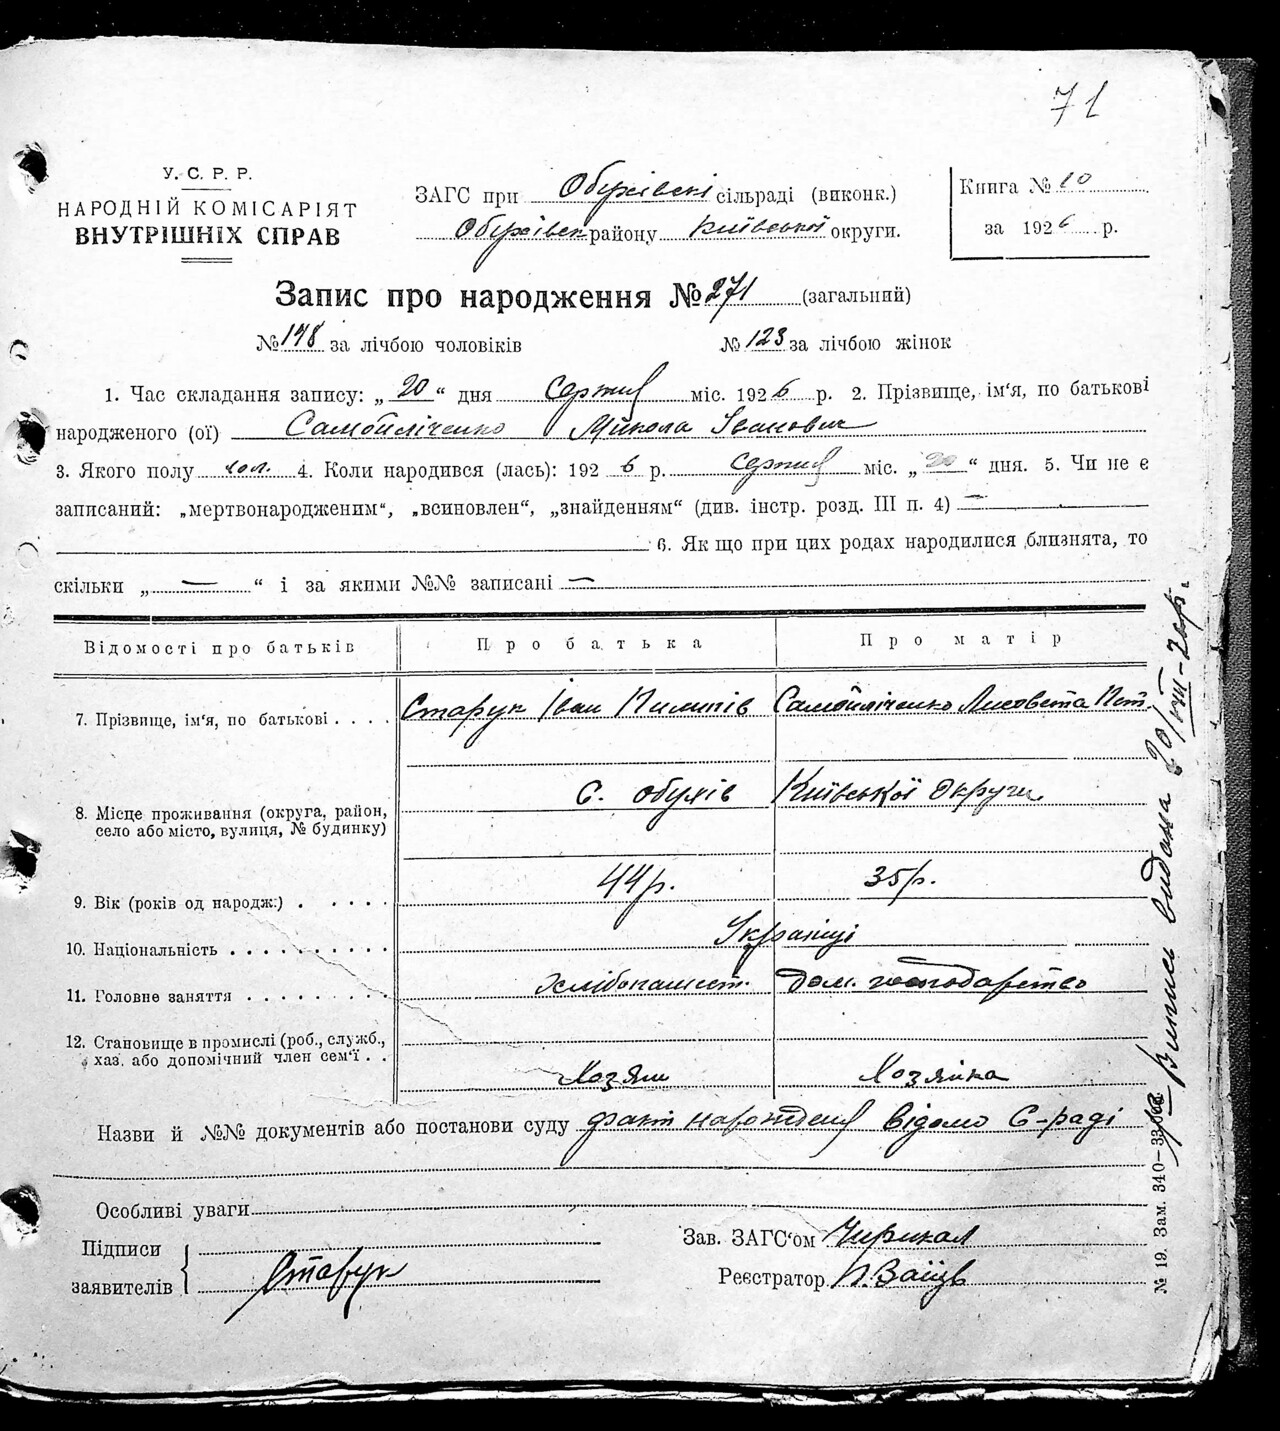 71
У. С. Р. Р.
НАРОДНІЙ КОМІСАРІЯТ
ВНУТРІШНІХ СПРАВ
ЗАГС при Обухівскі сільраді (виконк.)
Обухівськ району Київської округи.
Книга № 10
за 1926 р.
Запис про народження № 271 (загальний)
№ 148 за лічбою чоловіків
№ 123 за лічбою жінок
1. Час складання запису: „20“ дня Серпня міс. 1926 р. 2. Прізвище, ім'я, по батькові
народженого (ої) Самойліченко Микола Іванович
3. Якого полу чол. 4. Коли народився (лась): 1926 р. серпня міс. „20“ дня. 5. Чи не є
записаний: „мертвонародженим“, „всиновлен“, „знайденням“ (див. інстр. розд. III п. 4) —
6. Як що при цих родах народилися близнята, то
скільки „—“ і за якими №№ записані —
Відомості про батьків Про батька Про матір
7. Прізвище, ім'я, по батькові . . . . Старук Іван Пилипів Самойліченко Лисовета Пет.
8. Місце проживання (округа, район,
село або місто, вулиця, № будинку)
С. Обухів Київської Округи
9. Вік (років од народж.) . . . . . 44р. 35р.
10. Національність . . . . . . . . . Українці
11. Головне заняття . . . . . . . . . Хлібопашест. дом. господарство
12. Становище в промислі (роб., служб.,
хаз. або допомічний член сем'ї . .
Хозяін Хозяйка
Назви й №№ документів або постанови суду факт народження відомо С-раді
Особливі уваги
Підписи
заявителів
Старук
Зав. ЗАГС'ом
Реєстратор П. Заїць
№ 19. Зам. 340—33
Випись видана 20/VIII-26р.